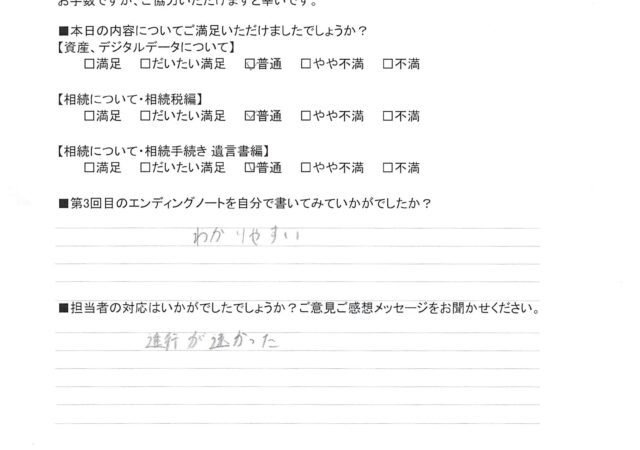 お手数ですが、ご協力いただけますと幸いです。
■本日の内容についてご満足いただけましたでしょうか？
【資産、デジタルデータについて】
□満足 □だいたい満足 ☑普通 □やや不満 □不満
【相続について・相続税編】
□満足 □だいたい満足 ☑普通 □やや不満 □不満
【相続について・相続手続き 遺言書編】
□満足 □だいたい満足 ☑普通 □やや不満 □不満
■第3回目のエンディングノートを自分で書いてみていかがでしたか？
わかりやすい
■担当者の対応はいかがでしたでしょうか？ご意見ご感想メッセージをお聞かせください。
進行が速かった